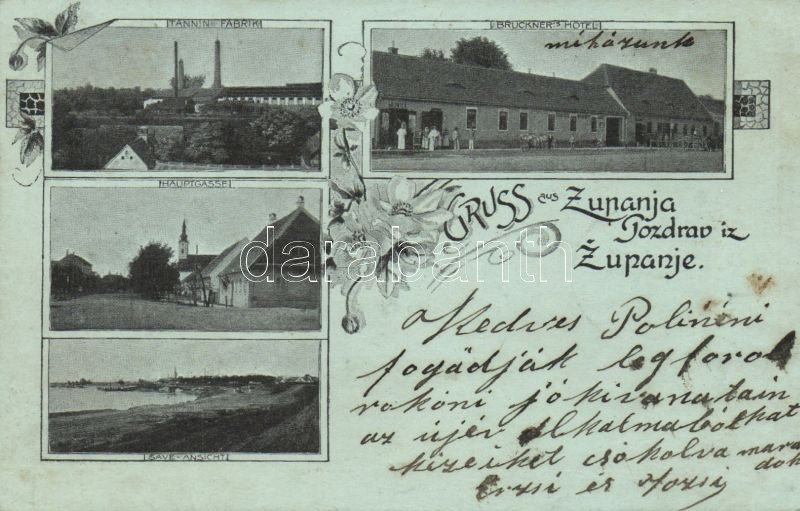 TANNIN FABRIK
BRUCKNER'S HOTEL
míházunk
HAUPTGASSE
GRUSS aus Županja
Pozdrav iz
Županje.
darabanth
Kedves Polinéni
fogádják legforo
rokoni jókivanatain
az újév alkalmából
kezeiket csókolva mara
dok
Erzsi és Jozsi
SAVE-ANSICHT